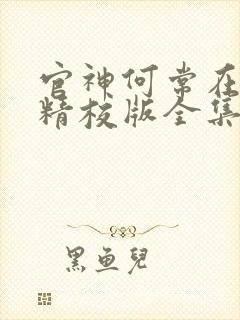 官神何常在
精校版全集
黑鱼兒